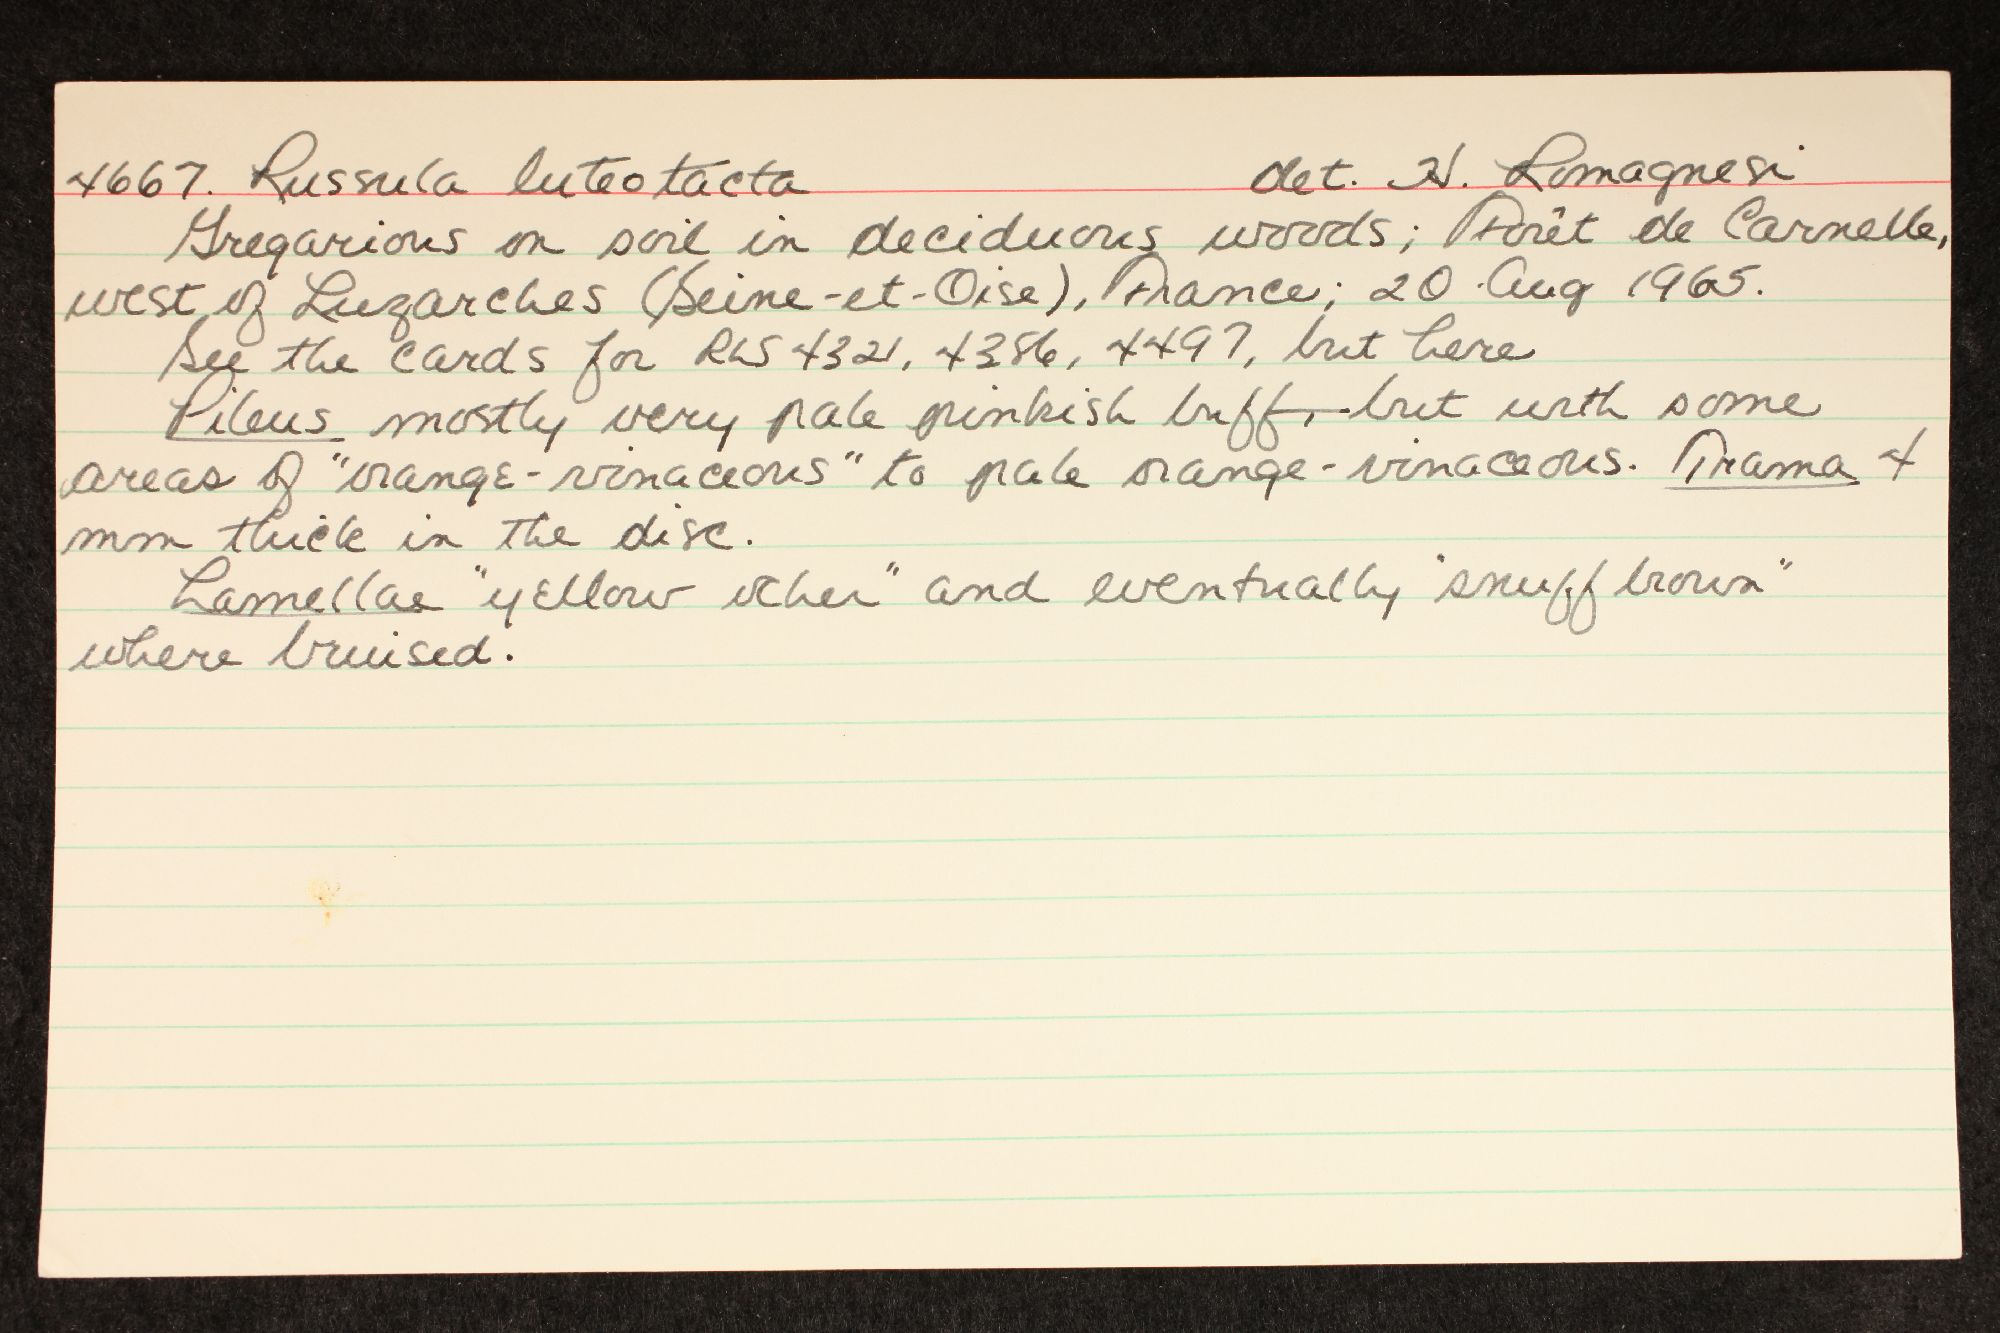 4667. Russula luteotacta det. H. Romagnesi
Gregarious on soil in deciduous woods; Forêt de Carnelle,
west of Luzarches (Seine-et-Oise), France; 20 Aug 1965.
See the cards for RLS 4321, 4386, 4497, but here
Pileus mostly very pale pinkish buff, but with some
areas of "orange-vinaceous" to pale orange-vinaceous. Trama 4
mm thick in the disc.
Lamellae "yellow ocher" and eventually "snuff brown"
where bruised.